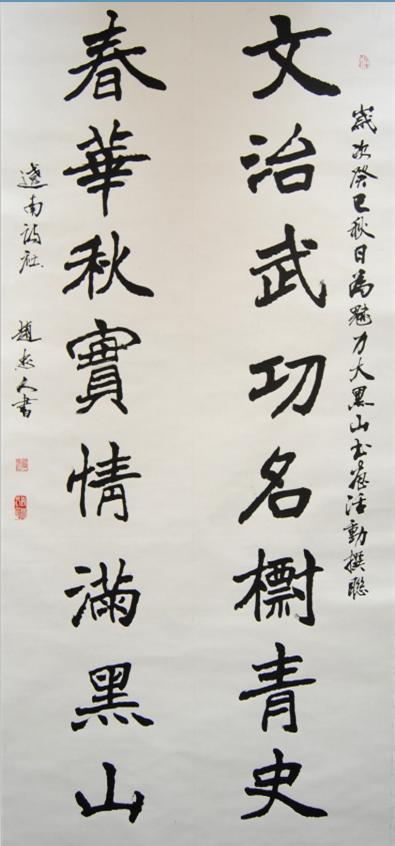 歲次癸巳秋日為魅力大黑山书活動撰聯
文治武功名標青史
春華秋實情滿黑山
遼南詩社 趙人書